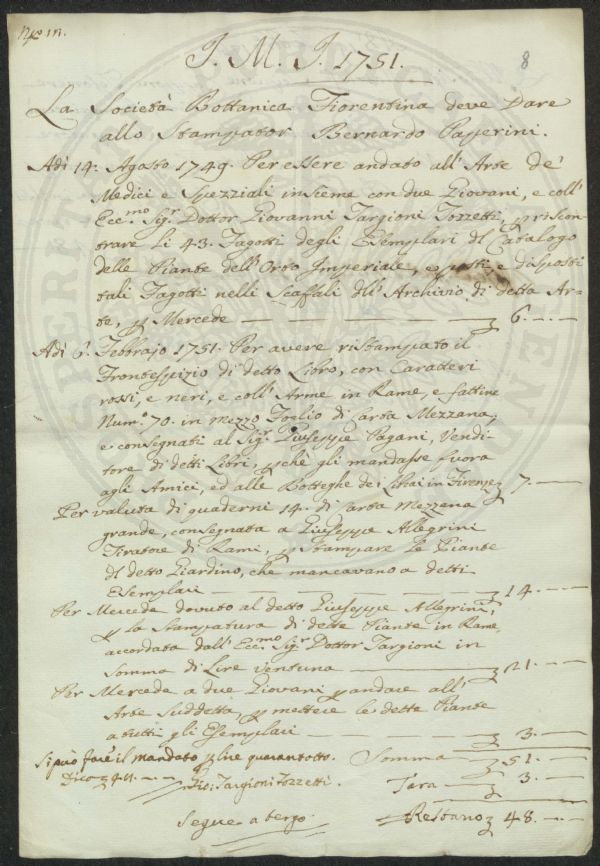 8
J. M. J. 1751.
La Società Bottanica Fiorentina deve Dare
allo Stampator Bernardo Paperini.
Adì 14. Agosto 1749. Per essere andato all' Arte de'
Medici e Spezziali insieme con due Giovani, e coll'
Ecc.mo Sig.r Dottor Giovanni Targioni Tozzetti, p riscon
trare li 43. Fagotti degli Esemplari dl Catalogo
delle Piante dell' Orto Imperiale, e posti, e disposti
tali Fagotti nelli Scaffali dll' Archivio di detta Ar-
te, p Mercede — 6. — —
Adì 6. Febbrajo 1751. Per avere ristampato il
Frontespizio di detto Libro, con Caratteri
rossi, e neri, e coll' Arme in Rame, e fattine
Num.o 70. in mezzo Foglio di Carta Mezzana,
e consegnati al Sig.r Giuseppe Pagani, Vendi-
tore di detti Libri, p chè gli mandasse fuora
agli Amici, ed alle Botteghe dei Librai in Firenze 7. — —
Per valuta di quaderni 14. di Carta Mezzana
grande, consegnata a Giuseppe Allegrini
Tiratore di Rami, p stampare le Piante
dl detto Giardino, che mancavano a detti
Esemplari — 14. — —
Per Mercede dovuto al detto Giuseppe Allegrini,
p la Stampatura di dette Piante in Rame,
accordata dall' Ecc.mo Sig.r Dottor Targioni in
somma di Lire ventuna — 21. — —
Per Mercede a due Giovani p andare all'
Arte Suddetta, p mettere le dette Piante
a tutti gli Esemplari — 3. — —
Si può fare il mandato p lire quarantotto. Somma — 51. — —
Dico 48. — — Gio: Targioni Tozzetti. Tara — 3. — —
Segue a tergo. Restano 48. — —